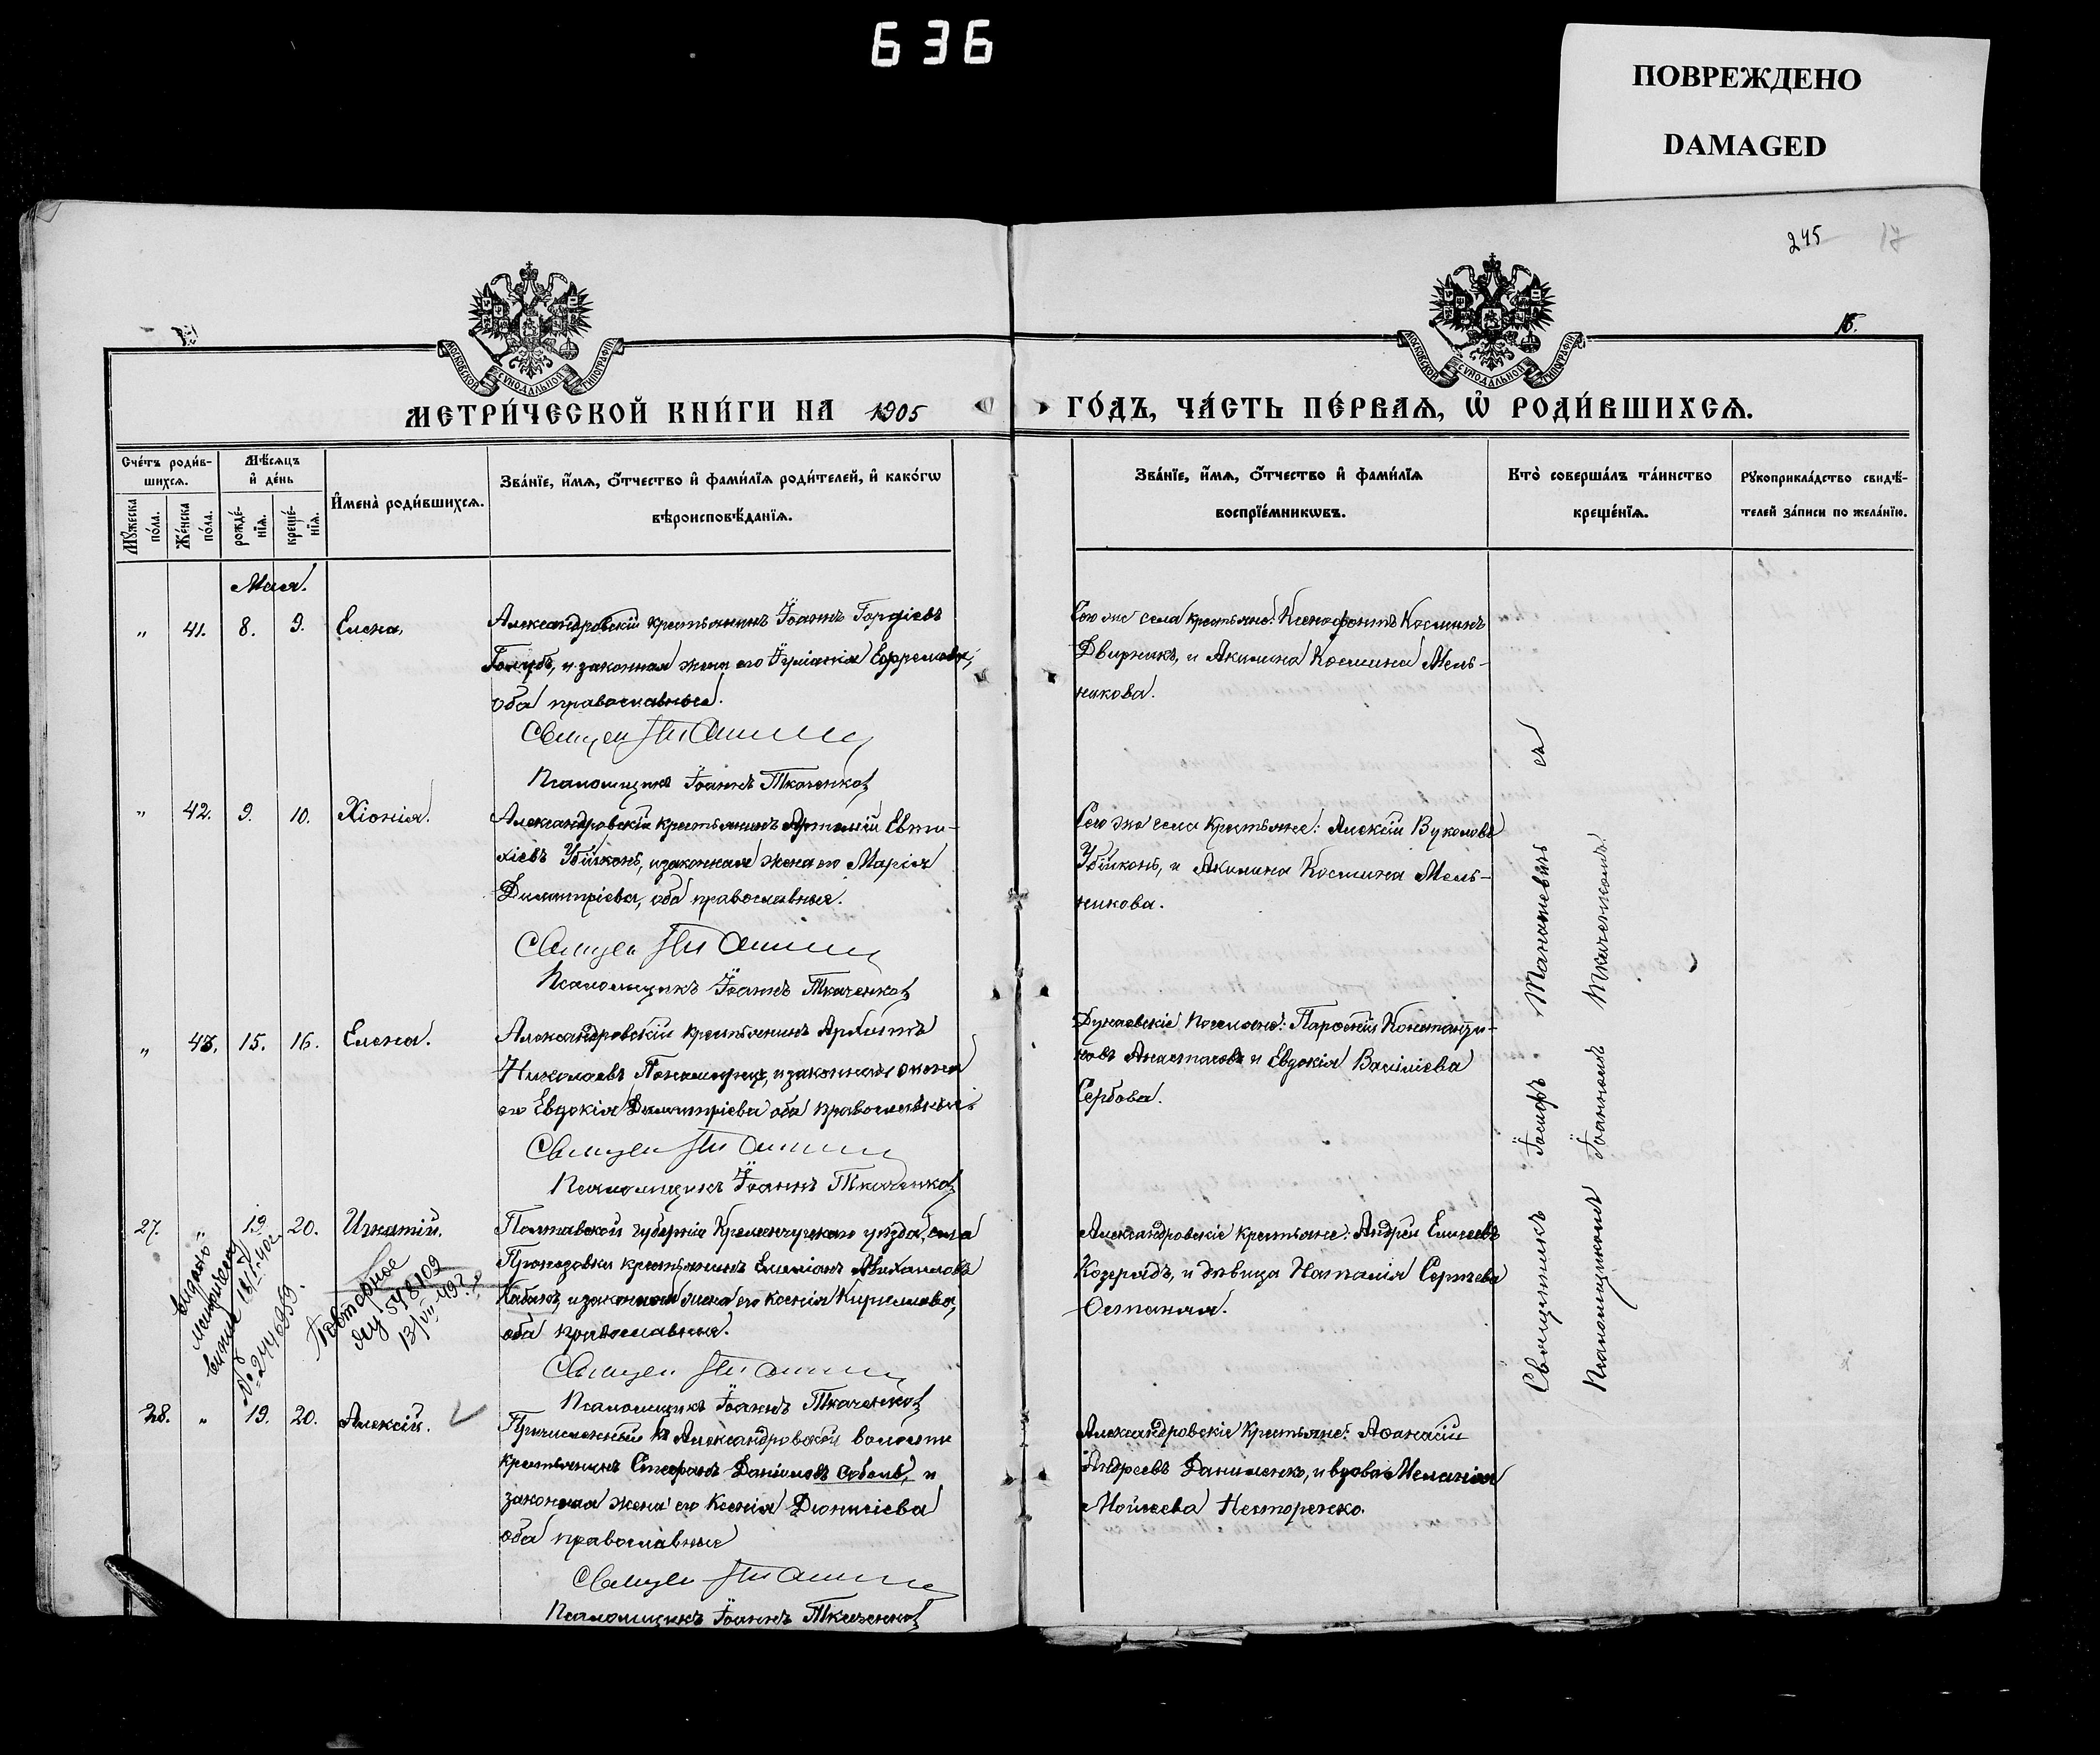 636
ПОВРЕЖДЕНО
DAMAGED
245 17
18.
МОСКОВСКОЙ СУНОДАЛЬНОЙ ТИПОГРАФІИ
МОСКОВСКОЙ СУНОДАЛЬНОЙ ТИПОГРАФІИ
МЕТРИ́ЧЕСКОЙ КНИ́ГИ НА 1905 ГО́ДЪ, ЧА́СТЬ ПЕ́РВАѦ, Ѡ҆ РОДИ́ВШИХСѦ.
Сче́тъ роди́в-
шихсѧ.
Мꙋ́жеска по́ла.
Же́нска по́ла.
Мѣ́сѧцъ
и҆ де́нь
рожде́-
нїѧ.
креще́-
нїѧ.
И҆мена̀ роди́вшихсѧ.
Зва́нїе, и҆́мѧ, ѻ҆́тчество и҆ фами́лїѧ роди́телей, и҆ како́гѡ
вѣроисповѣ́данїѧ.
Зва́нїе, и҆́мѧ, ѻ҆́тчество и҆ фами́лїѧ
воспрїе́мникѡвъ.
Кто̀ соверша́лъ та́инство
креще́нїѧ.
Рꙋкоприкла́дство свидѣ́-
телей за́писи по жела́нїю.
Мая.
„ 41. 8. 9. Елена.
Александровскій крестьянинъ Іоаннъ Гордіевъ
Голубъ, и законная жена его Іуліанія Ефремова,
оба православные.
Священ
Псаломщикъ Іоаннъ Ткаченко
Того же села крестьяне: Ксенофонтъ Косминъ
Двирникъ, и Акилина Космина Мель-
никова.
„ 42. 9. 10. Хіонія.
Александровскій крестьянинъ Артемій Евти-
хіевъ Убійконь, и законная жена его Марія
Димитріева, оба православные.
Священ
Псаломщикъ Іоаннъ Ткаченко
Того же села крестьяне: Алексій Вуколовъ
Убійконь, и Акилина Космина Мель-
никова.
„ 43. 15. 16. Елена.
Александровскій крестьянинъ Архиппъ
Николаевъ и законная жена
его Евдокія Димитріева оба православные.
Священ
Псаломщикъ Іоаннъ Ткаченко
Дунаевскіе поселяне: Парфеній Константи-
новъ Анастасовъ и Евдокія Василіева
Сербова.
27. „ 19. 20. Игнатій.
Полтавской губерніи Кременчугскаго уѣзда, села
крестьянинъ Емеліанъ Михаиловъ
Кабакъ, и законная жена его Ксенія Кирилова,
оба православные.
Священ
Псаломщикъ Іоаннъ Ткаченко
Александровскіе крестьяне: Андрей Елисеевъ
Козерядъ, и дѣвица Наталія Сергѣева
Остапая.
Выдано
метрическая
№ 2446959.
Повторное
яу 548109
13/VII-49
28. „ 19. 20. Алексій.
Причисленный къ Александровской волости
крестьянинъ Стефанъ Даніиловъ Соболь, и
законная жена его Ксенія Діонисіева
оба православные
Священ
Псаломщикъ Іоаннъ Ткаченко
Александровскіе крестьяне: Аѳанасій
Андреевъ Даниленко, и вдова Меланія
Мойсеева Несторенко.
Священникъ Іосифъ Танашевичъ съ
Псаломщикомъ Іоанномъ Ткаченкомъ.